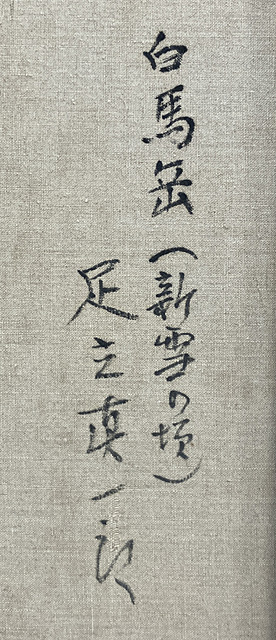 白馬岳（新雪の頃）
足立真一郎